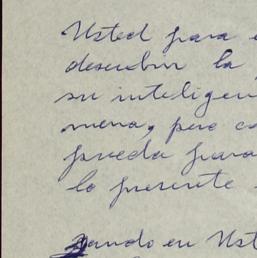 Usted para e
descubrir la
su inteligen
mena, pero co
pueda para
lo presente
ando en Ust